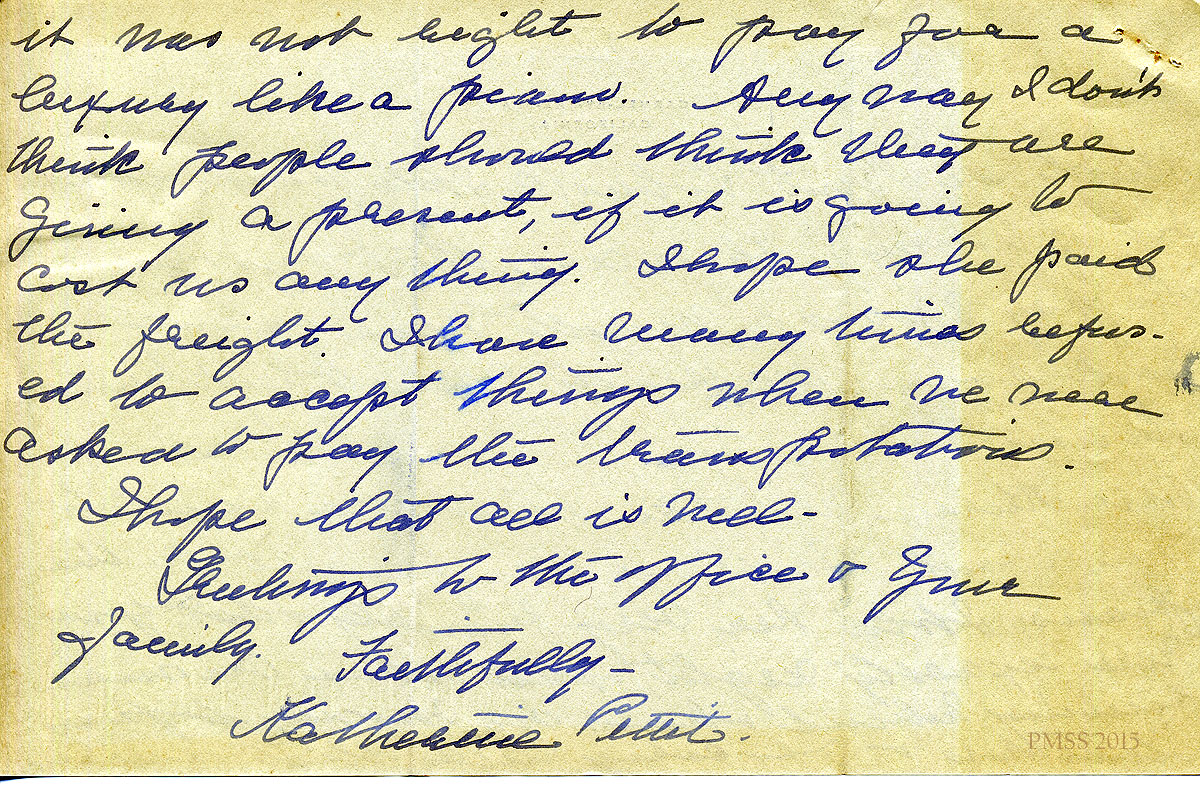 it was not right to pay for a
luxury like a piano. Any way I don't
think people should think they are
giving a present, if it is going to
cost us any thing. I hope she paid
the freight. I have many times refus-
ed to accept things when we were
asked to pay the transportation.
I hope that all is well -
Greetings to the office & your
family. Faithfully -
Katherine Pettit.
PMSS 2015